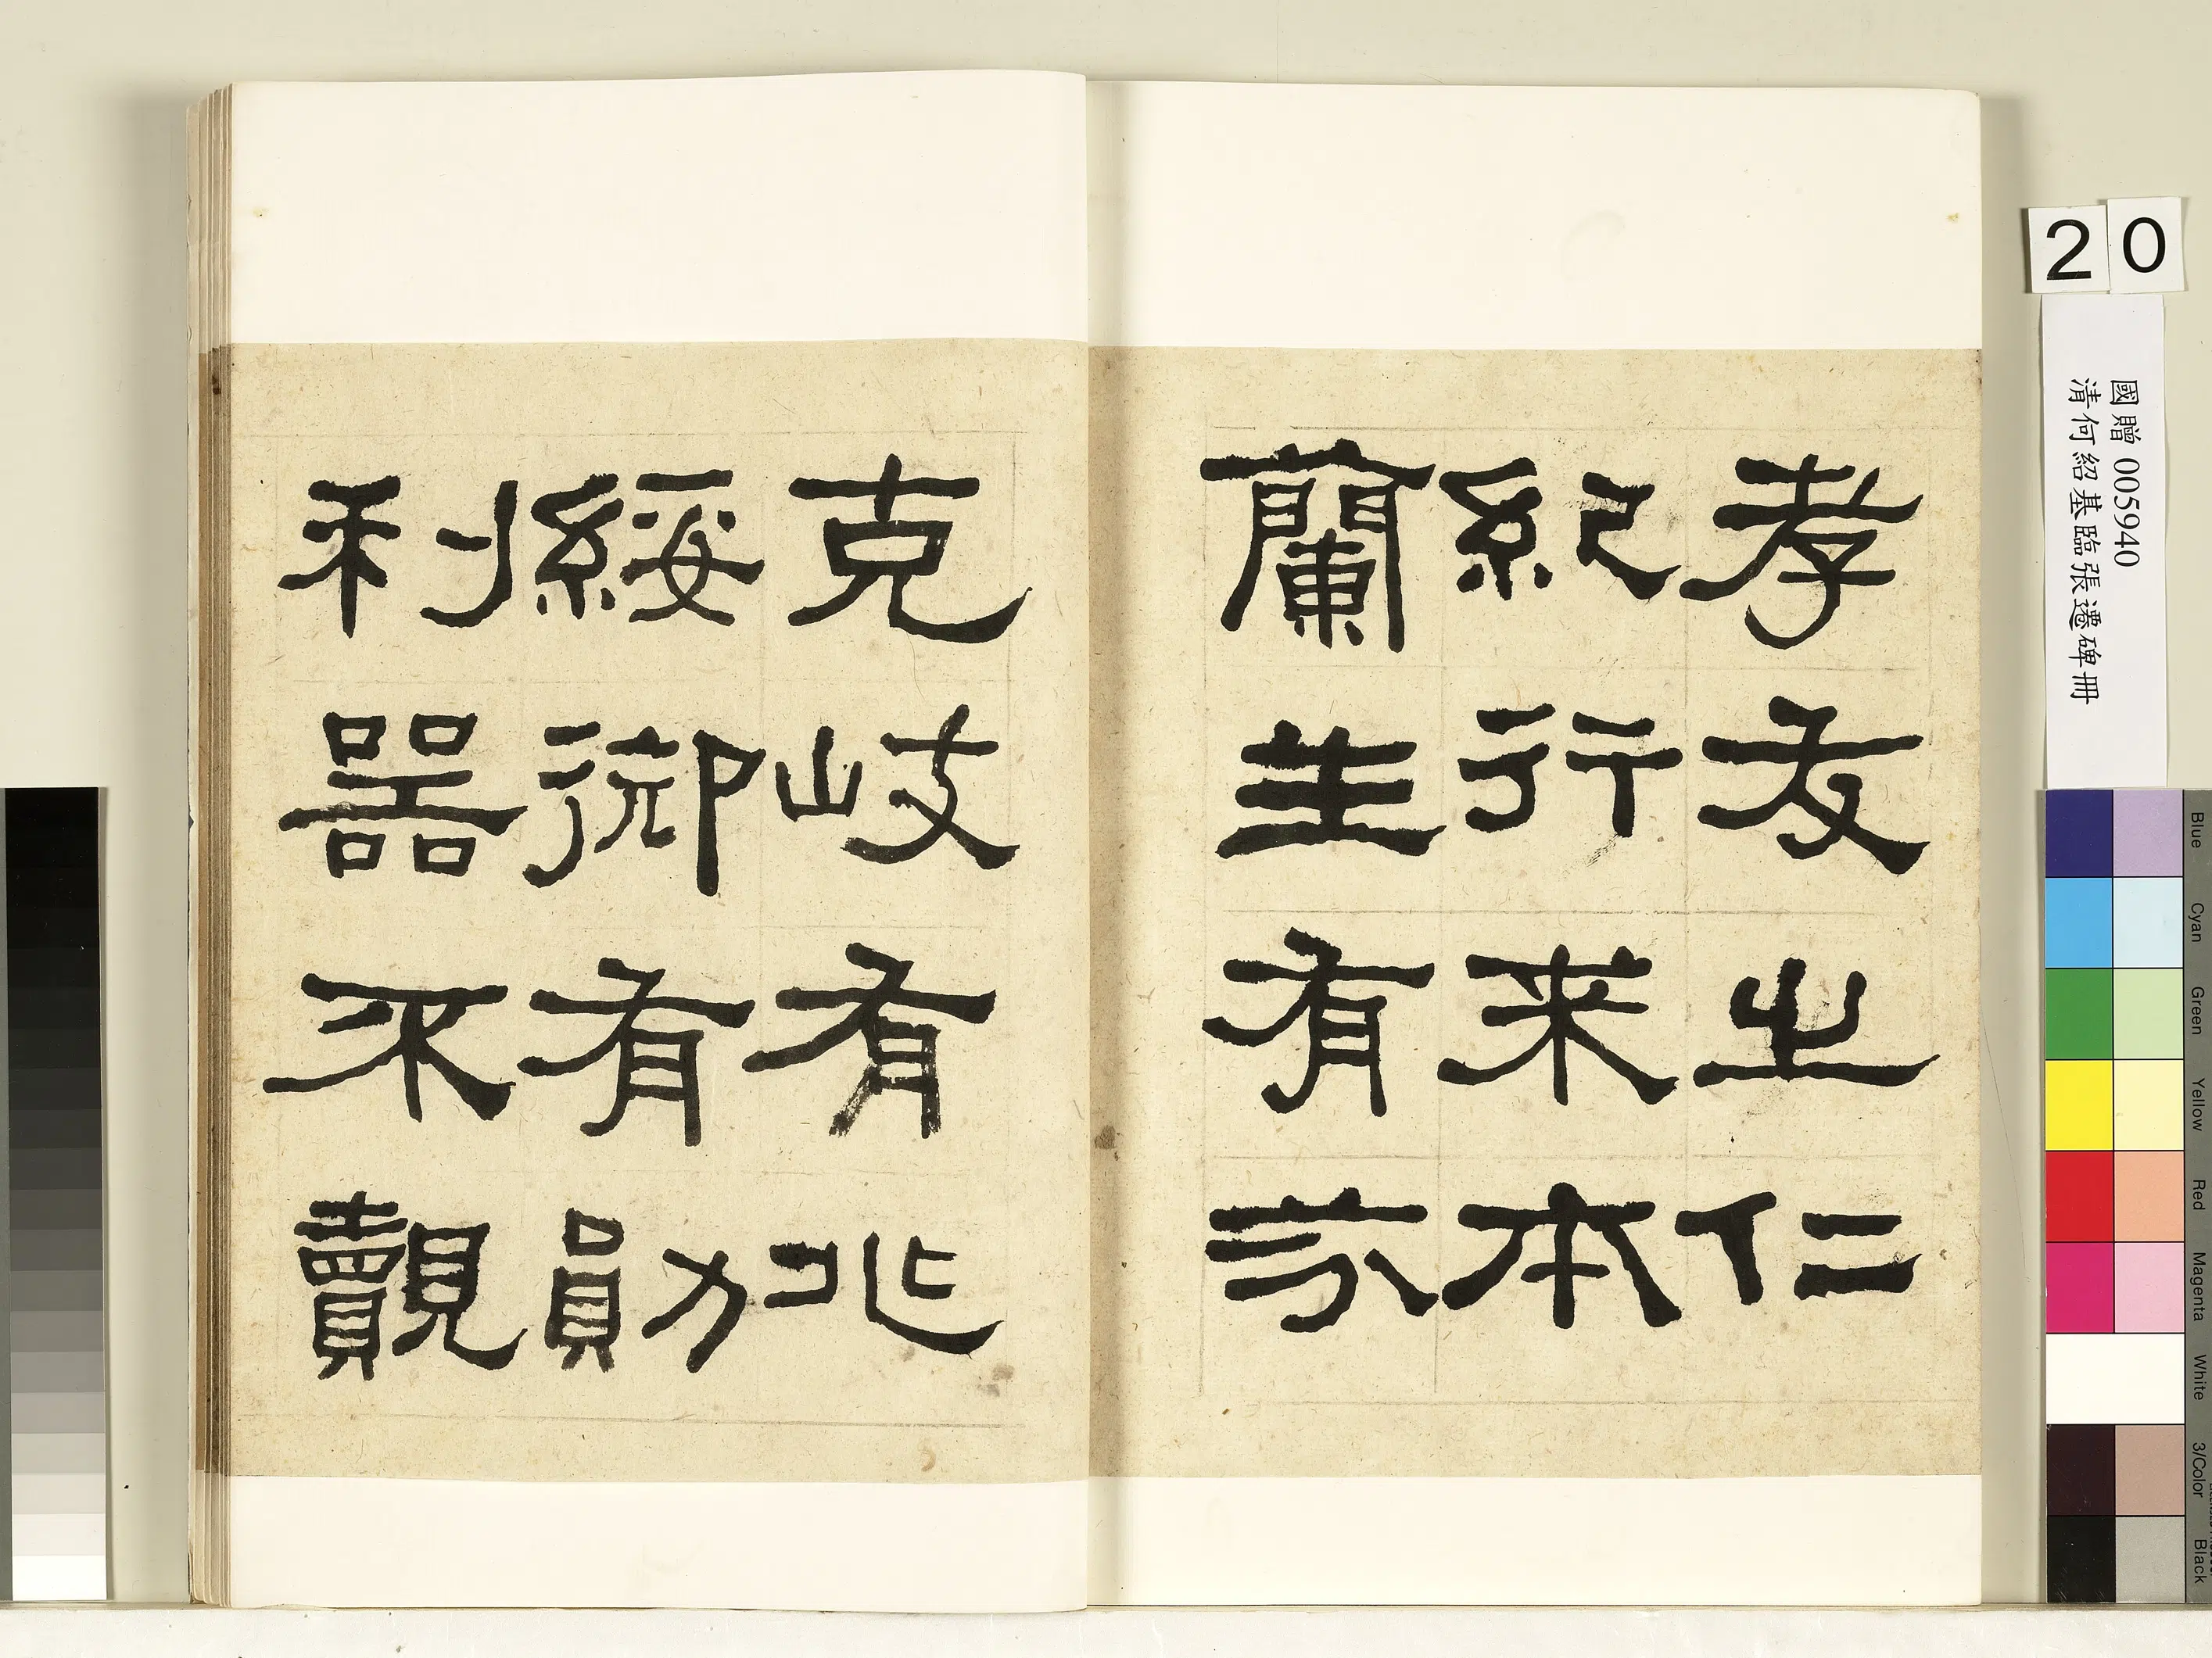 孝友之仁
紀行来本
蘭生有芬
克岐有兆
綏御有勛
利器不覿
20
國贈 005940
清何紹基臨張遷碑冊
Blue
Cyan
Green
Yellow
Red
Magenta
White
3/Color
Black